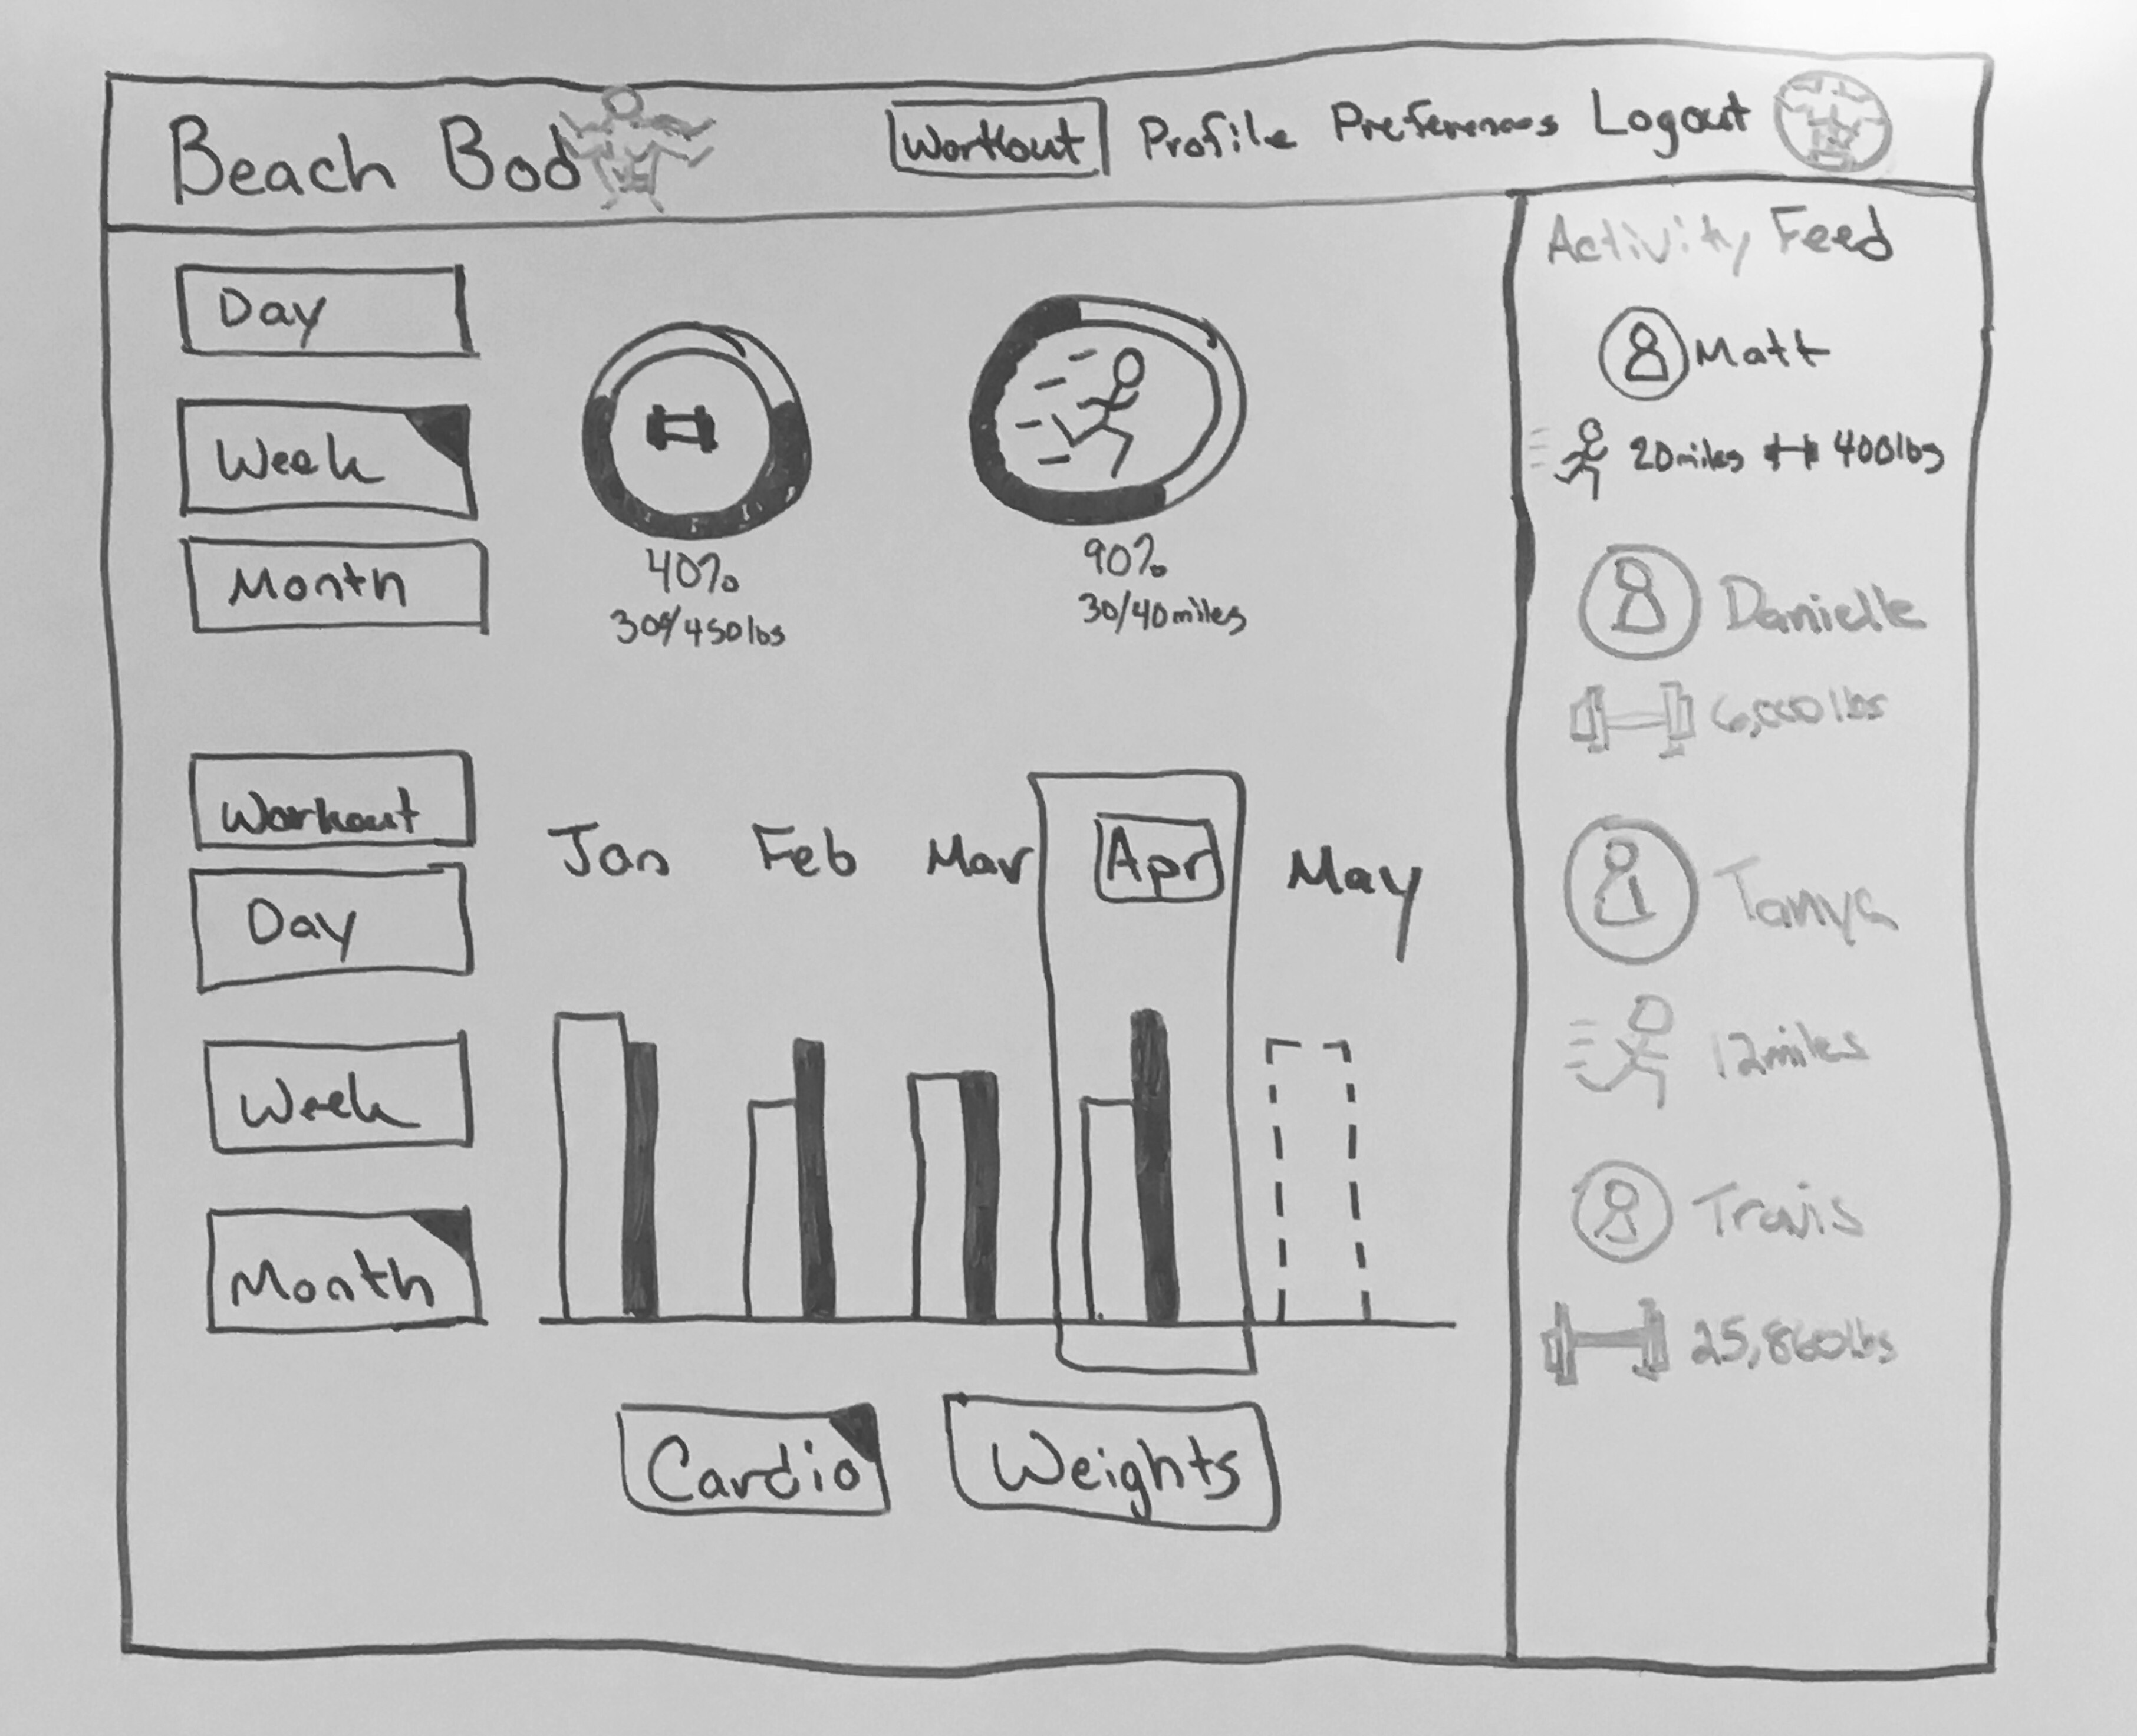 Beach Bod
Workout Profile Preferences Logout
Day
Week
Month
40%
90%
30/40miles
Workout
Day
Week
Month
Jan Feb Mar Apr May
Cardio Weights
Activity Feed
Matt
20miles 400lbs
Danielle
6,000lbs
Tanya
12miles
Travis
25,860lbs